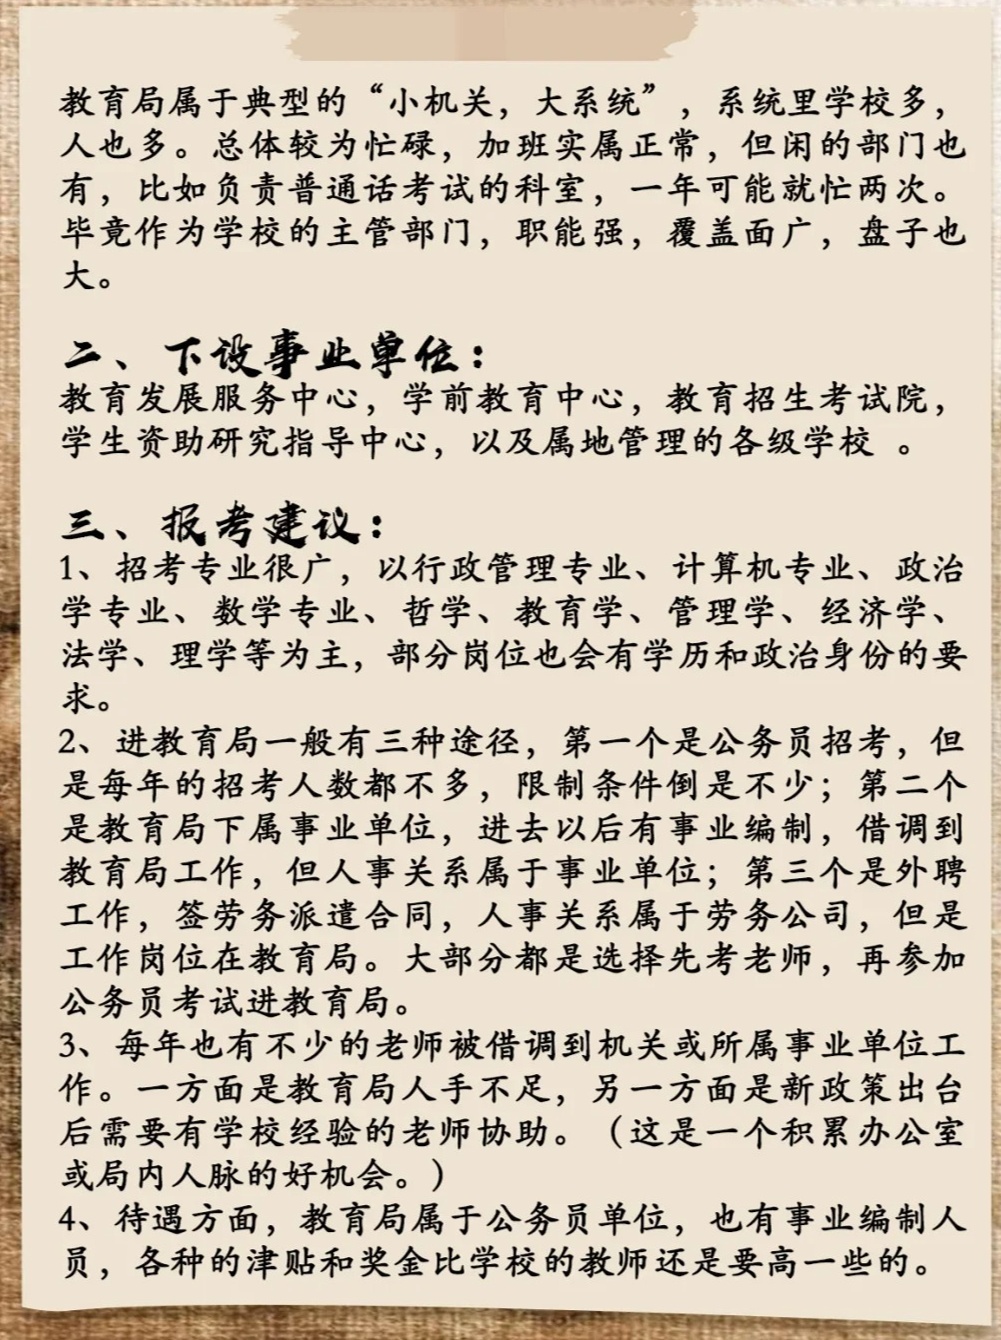 教育局属于典型的“小机关，大系统”，系统里学校多，
人也多。总体较为忙碌，加班实属正常，但闲的部门也
有，比如负责普通话考试的科室，一年可能就忙两次。
毕竟作为学校的主管部门，职能强，覆盖面广，盘子也
大。
二、下设事业单位：
教育发展服务中心，学前教育中心，教育招生考试院，
学生资助研究指导中心，以及属地管理的各级学校 。
三、报考建议：
1、招考专业很广，以行政管理专业、计算机专业、政治
学专业、数学专业、哲学、教育学、管理学、经济学、
法学、理学等为主，部分岗位也会有学历和政治身份的要
求。
2、进教育局一般有三种途径，第一个是公务员招考，但
是每年的招考人数都不多，限制条件倒是不少；第二个
是教育局下属事业单位，进去以后有事业编制，借调到
教育局工作，但人事关系属于事业单位；第三个是外聘
工作，签劳务派遣合同，人事关系属于劳务公司，但是
工作岗位在教育局。大部分都是选择先考老师，再参加
公务员考试进教育局。
3、每年也有不少的老师被借调到机关或所属事业单位工
作。一方面是教育局人手不足，另一方面是新政策出台
后需要有学校经验的老师协助。（这是一个积累办公室
或局内人脉的好机会。）
4、待遇方面，教育局属于公务员单位，也有事业编制人
员，各种的津贴和奖金比学校的教师还是要高一些的。